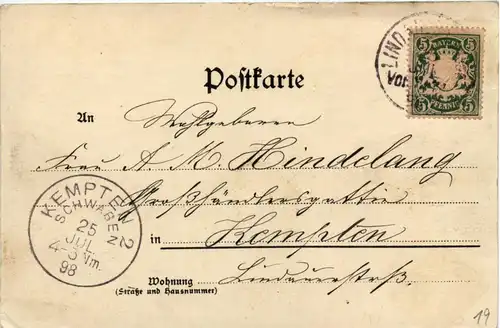 LIND
VOR
5 BAYERN 5
5 PFENNIG 5
Postkarte
An Wohlgeboren
Frau A. M. Hindelang
Großhändlersgattin
in Kempten
Wohnung Lindauerstrß.
(Straße und Hausnummer)
KEMPTEN 2
SCHWABEN
25
JUL
Nm.
98
19